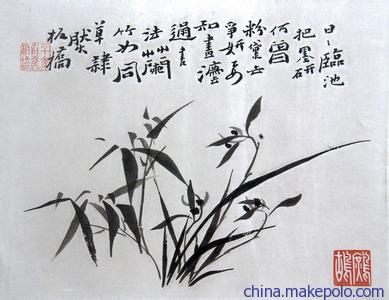 日〻臨池
把墨研
何曾
粉黛去
爭妍要
知畫灋
通書
法蘭
竹如同
草隸
然
板橋
china.makepolo.com